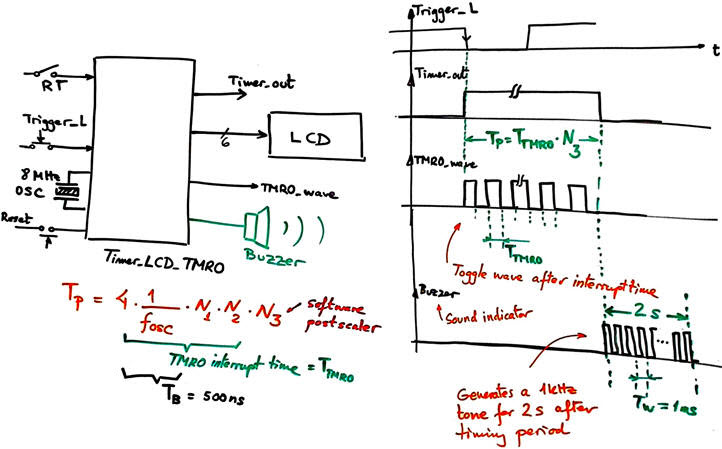 RT
Trigger_L
8 MHz
OSC
Reset
Timer_out
6
LCD
TMR0_wave
Buzzer
Timer_LCD_TMR0
Tp = 4 · 1/fosc · N1 · N2 · N3
Software
postscaler
TMR0 interrupt time = TTMR0
TB = 500ns
Trigger_L
t
Timer_out
Tp = TTMR0 · N3
TMR0_wave
TTMR0
Toggle wave after interrupt time
Buzzer
Sound indicator
2 s
Generates a 1kHz
tone for 2 s after
timing period
Tw = 1ms